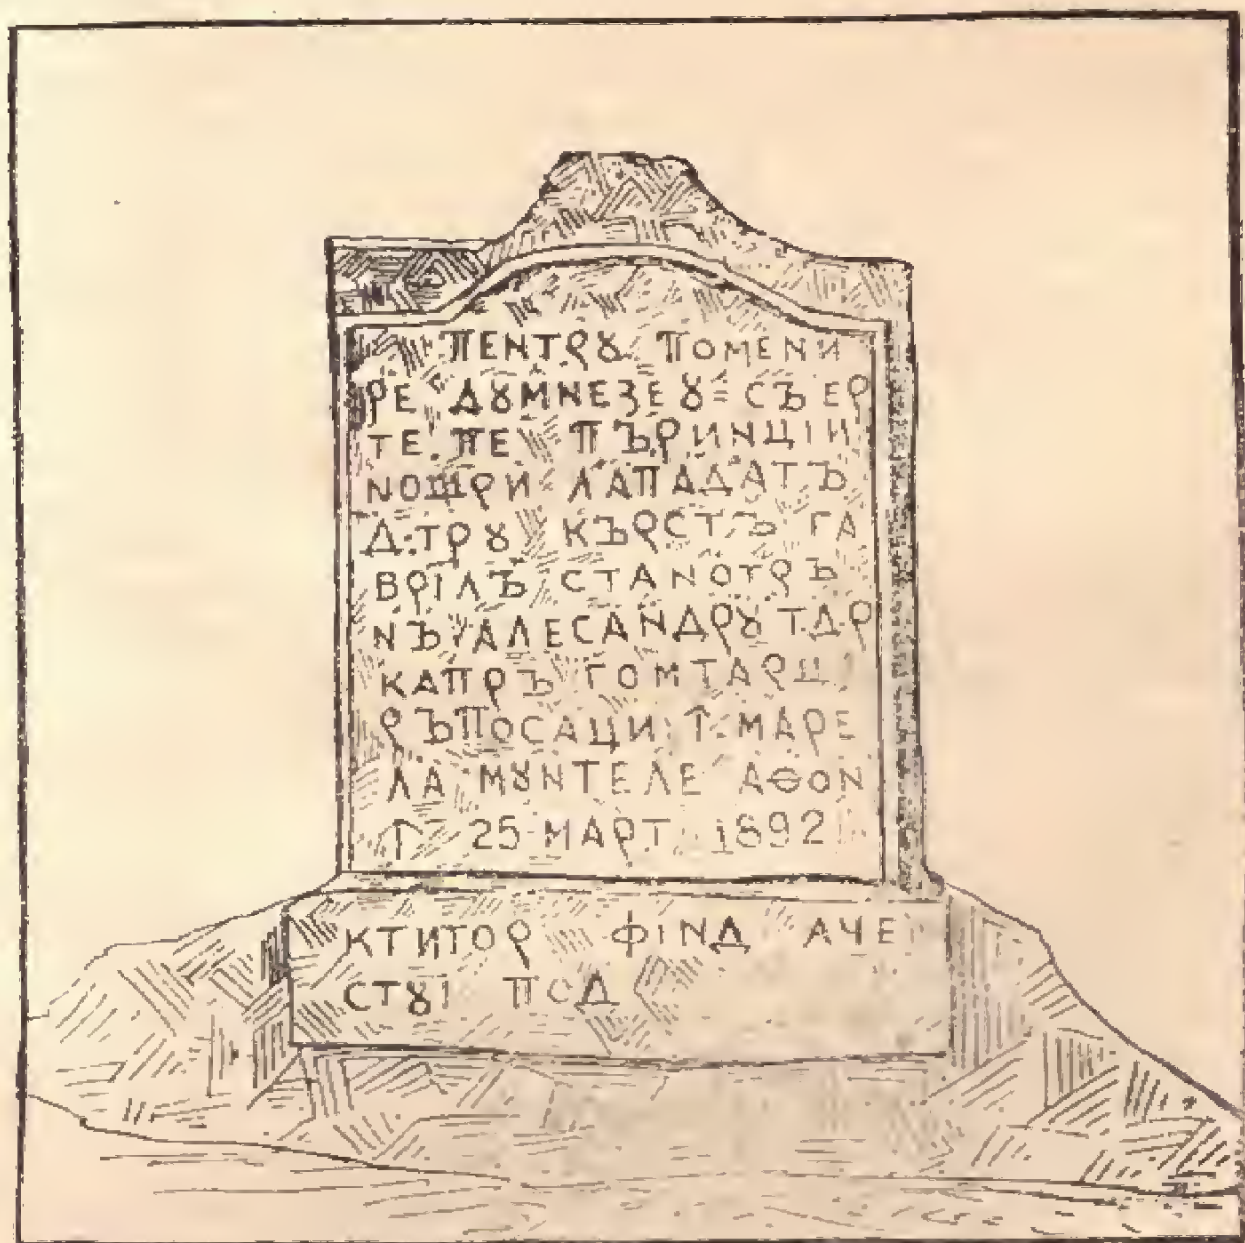 ПЕНТРꙋ ПОМЕНИ
РЕ ДꙋМНЕЗЕꙋ СЪ ЕР
ТЕ ПЕ ПЪРИНЦІИ
НОЩРИ ЛАПАДАТЪ
Д·ТРꙋ КЪРСТЪ ГА
ВРІЛЪ СТАНОТРЪ
НЪ АЛЕСАНДРꙋ Т.Д.Р
КАПРЪ ГОМТАРЦІ
РЪПОСАЦИ Ꙟ МАРЕ
ЛА МꙋНТЕЛЕ АѲОН
Ꙟ 25 МАРТ 1892
КТИТОР ФІНД АЧЕ
СТꙋІ ПОД